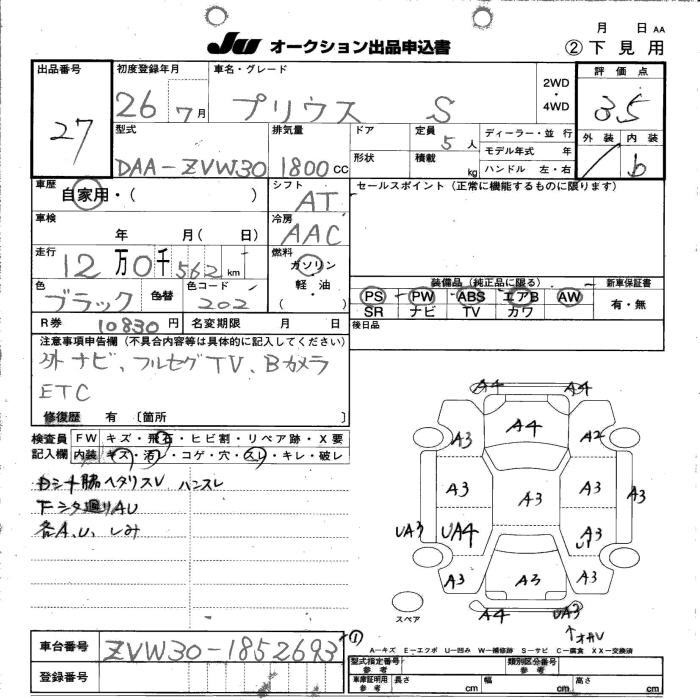 月 日 AA
JU オークション出品申込書 ②下見用
出品番号 27
初度登録年月 26 7月
車名・グレード プリウス S
2WD・4WD
評価点 3.5
外装 内装 b
型式 DAA-ZVW30
排気量 1800 CC
ドア 定員 5人
形状 積載 kg
ディーラー・並行
モデル年式 年
ハンドル 左・右
車歴 自家用・( )
シフト AT
セールスポイント(正常に機能するものに限ります)
車検 年 月( 日)
冷房 AAC
走行 12万0千562km
燃料 ガソリン・軽油・( )
色 ブラック 色替 色コード 202
装備品(純正品に限る) 新車保証書
PS PW ABS エアB AW 有・無
SR ナビ TV カワ
R券 10830円 名変期限 月 日
後日品
注意事項申告欄(不具合内容等は具体的に記入してください)
外ナビ、フルセグTV、Bカメラ
ETC
修復歴 有 〔箇所 〕
検査員記入欄
FW キズ・飛石・ヒビ割・リペア跡・X要
内装 キズ・汚レ・コゲ・穴・スレ・キレ・破レ
Dシート脇ヘタリスレ ハンスレ
各A、U、しみ
A4 A4
A4
A3 A2
A3 A3 A3 A3
UA3 UA4 A3
U1
A3 A3 A3
A4 UA3
スペア
A―キズ E―エクボ U―凹み W―補修跡 S―サビ C―腐食 XX―交換済
車台番号 ZVW30-1852693 ①
登録番号
型式指定番号 参考 類別区分番号 参考
車庫証明用 参考 長さ cm 幅 cm 高さ cm